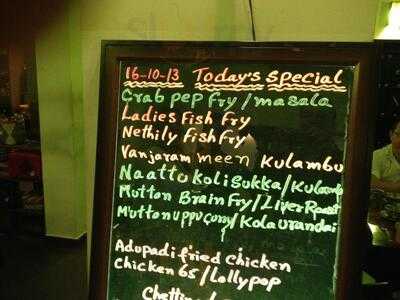 16-10-13 Today's Special
Crab pep fry / masala
Ladies Fish Fry
Nethily Fish Fry
Vanjaram meen Kulambu
Naattu koli Sukka / Kulambu
Mutton Brain Fry / Liver Roast
Mutton uppu curry / Kola urandai
Adupadi fried chicken
Chicken 65 / Lollypop